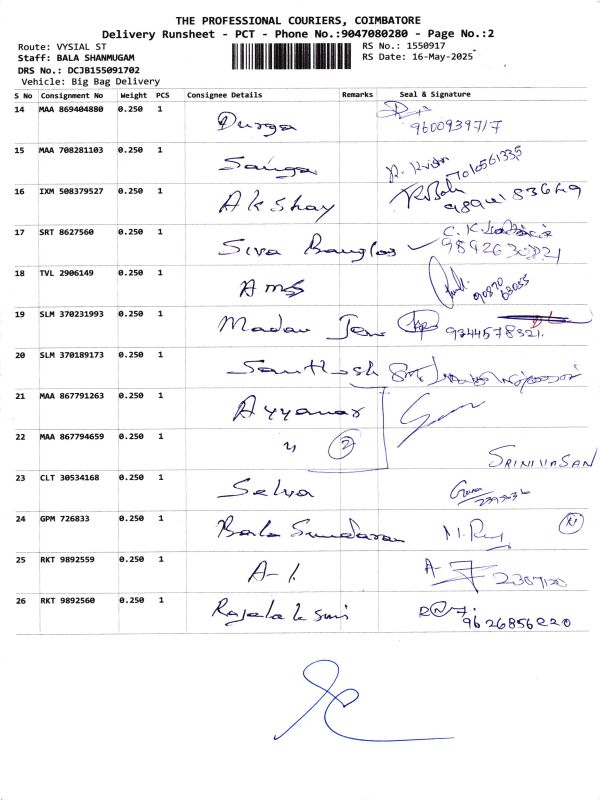 THE PROFESSIONAL COURIERS, COIMBATORE
Delivery Runsheet - PCT - Phone No.:9047080280 - Page No.:2
Route: VYSIAL ST
RS No.: 1550917
Staff: BALA SHANMUGAM
RS Date: 16-May-2025
DRS No.: DCJB155091702
Vehicle: Big Bag Delivery
S No Consignment No Weight PCS Consignee Details Remarks Seal & Signature
14 MAA 869404880 0.250 1 Durga 9600939717
15 MAA 708281103 0.250 1 7010561335
16 IXM 508379527 0.250 1 Akshay
17 SRT 8627560 0.250 1 Siva
18 TVL 2906149 0.250 1 AMS 90870 63055
19 SLM 370231993 0.250 1 Madav 9344578321.
20 SLM 370189173 0.250 1 Santhosh
21 MAA 867791263 0.250 1 Ayyanar
22 MAA 867794659 0.250 1 " 2 SRINIVASAN
23 CLT 30534168 0.250 1 Selva
24 GPM 726833 0.250 1 Bala Sundaram
25 RKT 9892559 0.250 1 A-1
26 RKT 9892560 0.250 1 9626856220